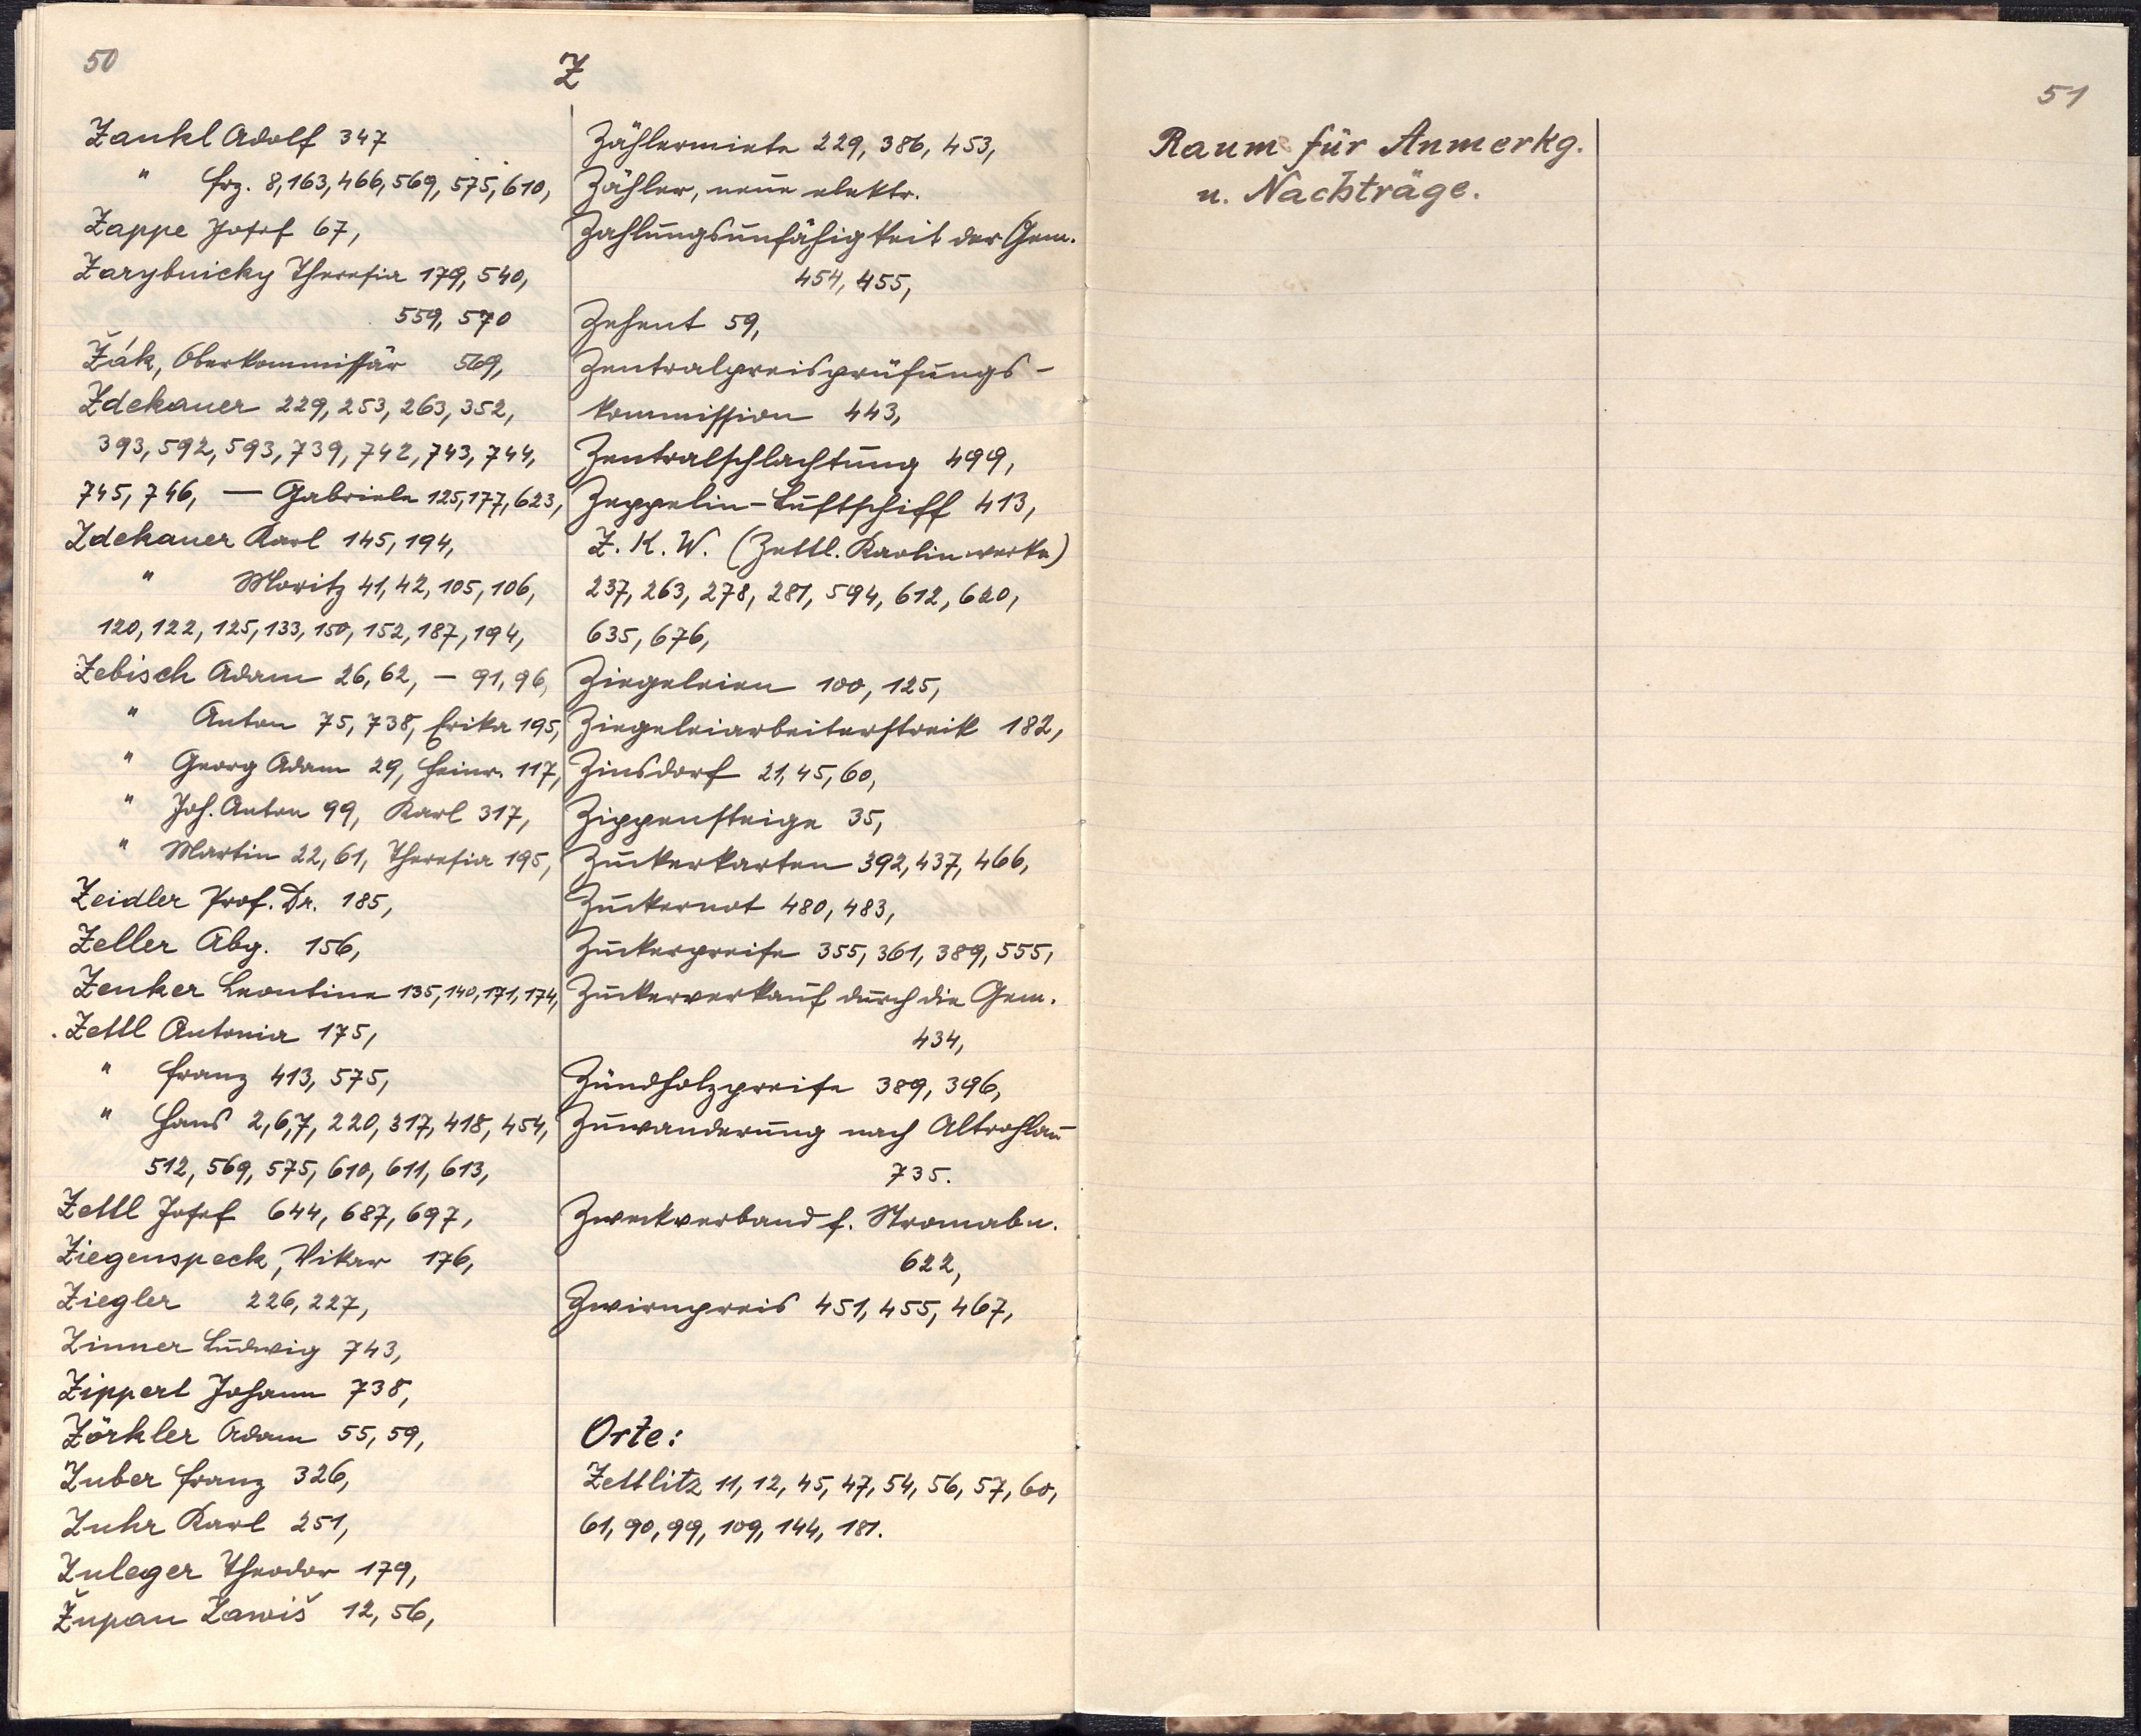 50
Z
Zankl Adolf 347
" Frz. 8, 163, 466, 569, 575, 610,
Zappe Josef 67,
Zarybnicky Theresia 179, 540,
559, 570
Žák, Oberkommissär 569,
Zdekauer 229, 253, 263, 352,
393, 592, 593, 739, 742, 743, 744,
745, 746, — Gabriele 125, 177, 623,
Zdekauer Karl 145, 194,
" Moritz 41, 42, 105, 106,
120, 122, 125, 133, 150, 152, 187, 194,
Zebisch Adam 26, 62, – 91, 96,
" Anton 75, 738, Erika 195,
" Georg Adam 29, Heinr. 117,
" Joh. Anton 99, Karl 317,
" Martin 22, 61, Theresia 195,
Zeidler Prof. Dr. 185,
Zeller Abg. 156,
Zenker Leontine 135, 140, 171, 174,
Zettl Antonia 175,
" Franz 413, 575,
" Hans 2, 6, 7, 220, 317, 418, 454,
512, 569, 575, 610, 611, 613,
Zettl Josef 644, 687, 697,
Ziegenspeck, Vikar 176,
Ziegler 226, 227,
Zinner Ludwig 743,
Zippert Johann 738,
Zörkler Adam 55, 59,
Zuber Franz 326,
Zuhr Karl 251,
Zuleger Theodor 179,
Župan Zawiš 12, 56,
Zählermiete 229, 386, 453,
Zähler, neue elektr.
Zahlungsunfähigkeit der Gem.
454, 455,
Zehent 59,
Zentralpreisprüfungs-
kommission 443,
Zentralschlachtung 499,
Zeppelin-Luftschiff 413,
Z. K. W. (Zettl. Kaolinwerke)
237, 263, 278, 281, 594, 612, 620,
635, 676,
Ziegeleien 100, 125,
Ziegeleiarbeiterstreik 182,
Zinsdorf 21, 45, 60,
Zippensteige 35,
Zuckerkarten 392, 437, 466,
Zuckernot 480, 483,
Zuckerpreise 355, 361, 389, 555,
Zuckerverkauf durch die Gem.
434,
Zündholzpreise 389, 396,
Zuwanderung nach Altrohlau
735.
Zweckverband f. Stromabn.
622,
Zwirnpreis 451, 455, 467,
Orte:
Zettlitz 11, 12, 45, 47, 54, 56, 57, 60,
61, 90, 99, 109, 144, 181.
51
Raum für Anmerkg.
u. Nachträge.